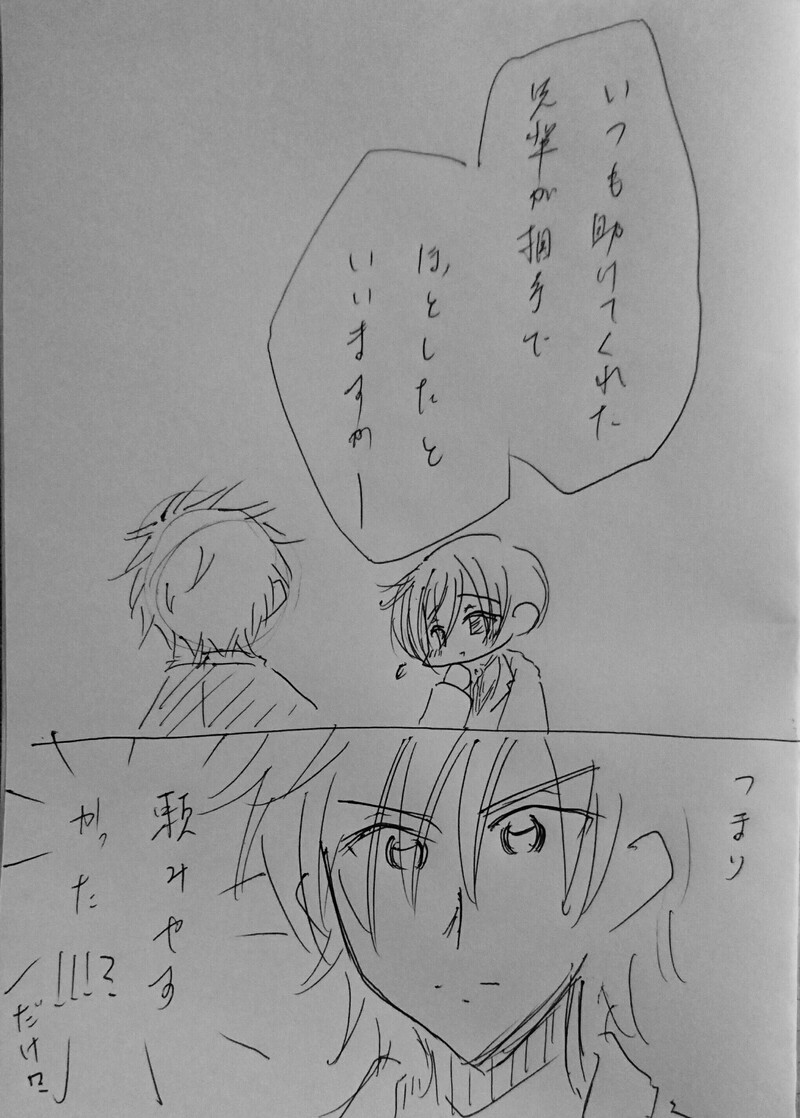 いつも助けてくれた
先輩が相手で
ほっとしたと
いいますかー
つまり
頼みやす
かった!!!?
だけ!?